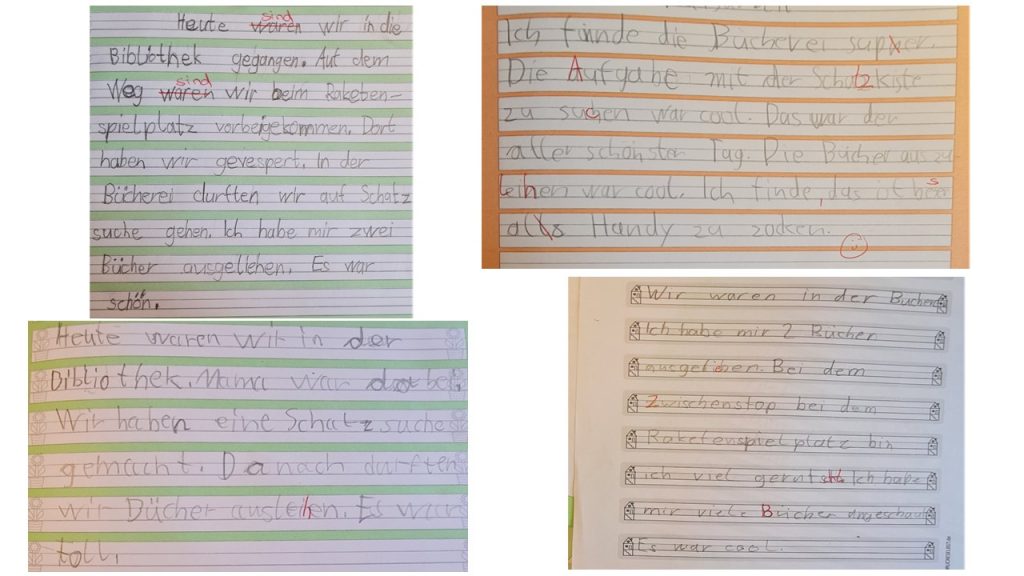 Heute sind waren wir in die
Bibliothek gegangen. Auf dem
Weg sind waren wir beim Raketen-
spielplatz vorbeigekommen. Dort
haben wir gevespert. In der
Bücherei durften wir auf Schatz
suche gehen. Ich habe mir zwei
Bücher ausgeliehen. Es war
schön.
Ich finde die Bücherei super.
Die Aufgabe mit der Schatzkiste
zu suchen war cool. Das war der
aller schönster Tag. Die Bücher auszu-
leihen war cool. Ich finde, das ist
als Handy zu zocken.
Heute waren wir in der
Bibliothek. Mama war dabei.
Wir haben eine Schatz suche
gemacht. Danach durften
wir Bücher ausleihen. Es war
toll.
Wir waren in der Bücherei
Ich habe mir 2 Bücher
ausgeliehen. Bei dem
Zwischenstop bei dem
Raketenspielplatz bin
ich viel gerutscht. Ich habe
mir viele Bücher angeschaut
Es war cool.